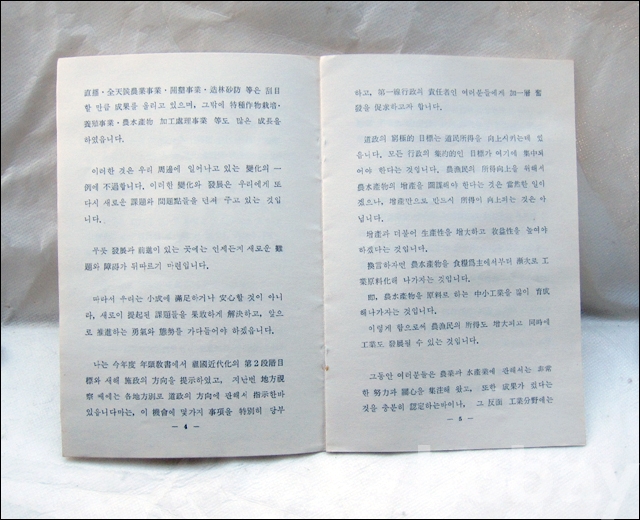 直播・全天候農業事業・開墾事業・造林砂防 等은 刮目
할 만큼 成果를 올리고 있으며, 그밖에 特種作物栽培・
養殖事業・農水產物 加工處理事業 等도 많은 成長을
하였읍니다.
이러한 것은 우리 周邊에 일어나고 있는 變化의 一
例에 不過합니다. 이러한 變化와 發展은 우리에게 또
다시 새로운 課題와 問題點들을 던져 주고 있는 것입
니다.
무릇 發展과 前進이 있는 곳에는 언제든지 새로운 難
題와 障碍가 뒤따르기 마련입니다.
따라서 우리는 小成에 滿足하거나 安心할 것이 아니
라, 새로이 提起된 課題들을 果敢하게 解決하고, 앞으
로 推進하는 勇氣와 態勢를 가다듬어야 하겠읍니다.
나는 今年度 年頭敎書에서 祖國近代化의 第2段階目
標와 새해 施政의 方向을 提示하였고, 지난번 地方視
察 때에는 各地方別로 道政의 方向에 관해서 指示한바
있읍니다마는, 이 機會에 몇가지 事項을 特別히 당부
— 4 —
하고, 第一線行政의 責任者인 여러분들에게 加一層 奮
發을 促求하고자 합니다.
道政의 窮極的 目標는 道民所得을 向上시키는데 있
읍니다. 모든 行政의 集約的인 目標가 여기에 集中되
어야 한다는 것입니다. 農漁民의 所得向上을 위해서
農水產物의 增產을 圖謀해야 한다는 것은 當然한 일이
겠으나, 增產만으로 반드시 所得이 向上되는 것은 아
닙니다.
增產과 더불어 生產性을 增大하고 收益性을 높여야
하겠다는 것입니다.
換言하자면 農水產物을 食糧爲主에서부터 漸次로 工
業原料化해 나가자는 것입니다.
即, 農水產物을 原料로 하는 中小工業을 많이 育成
해나가자는 것입니다.
이렇게 함으로써 農漁民의 所得도 增大되고 同時에
工業도 發展될 수 있는 것입니다.
그동안 여러분들은 農業과 水產業에 관해서는 非常
한 努力과 關心을 集注해 왔고, 또한 成果가 있다는
것을 충분히 認定하는바이나, 그 反面 工業分野에는
— 5 —